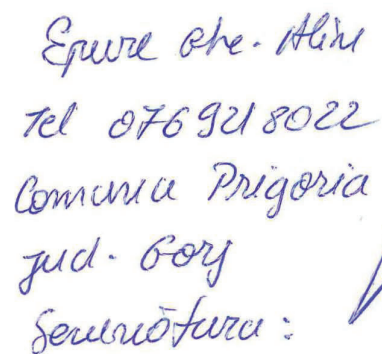 Epure Ghe. Alin
Tel 0769218022
Comuna Prigoria
jud. Gorj
Semnătura: